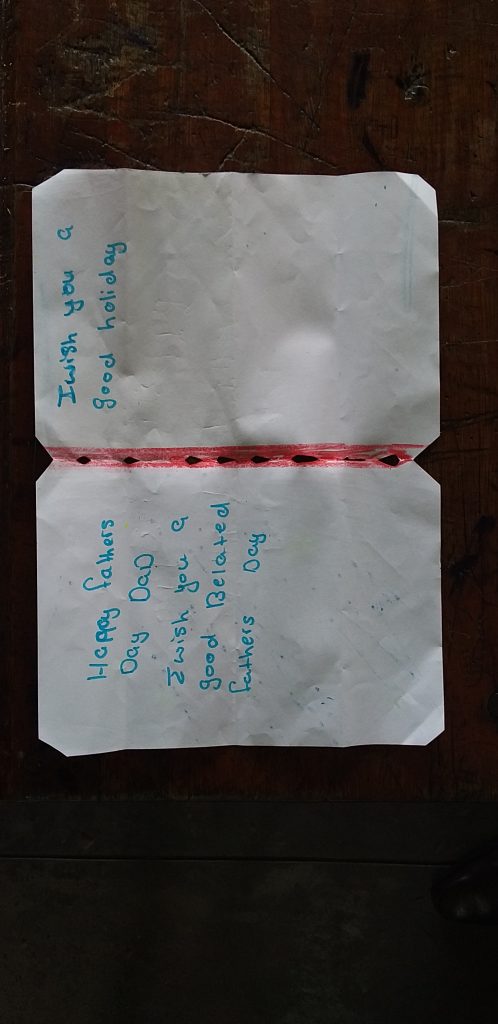 Happy fathers
Day DaD
I wish you a
good Belated
fathers Day
I wish you a
good holiday